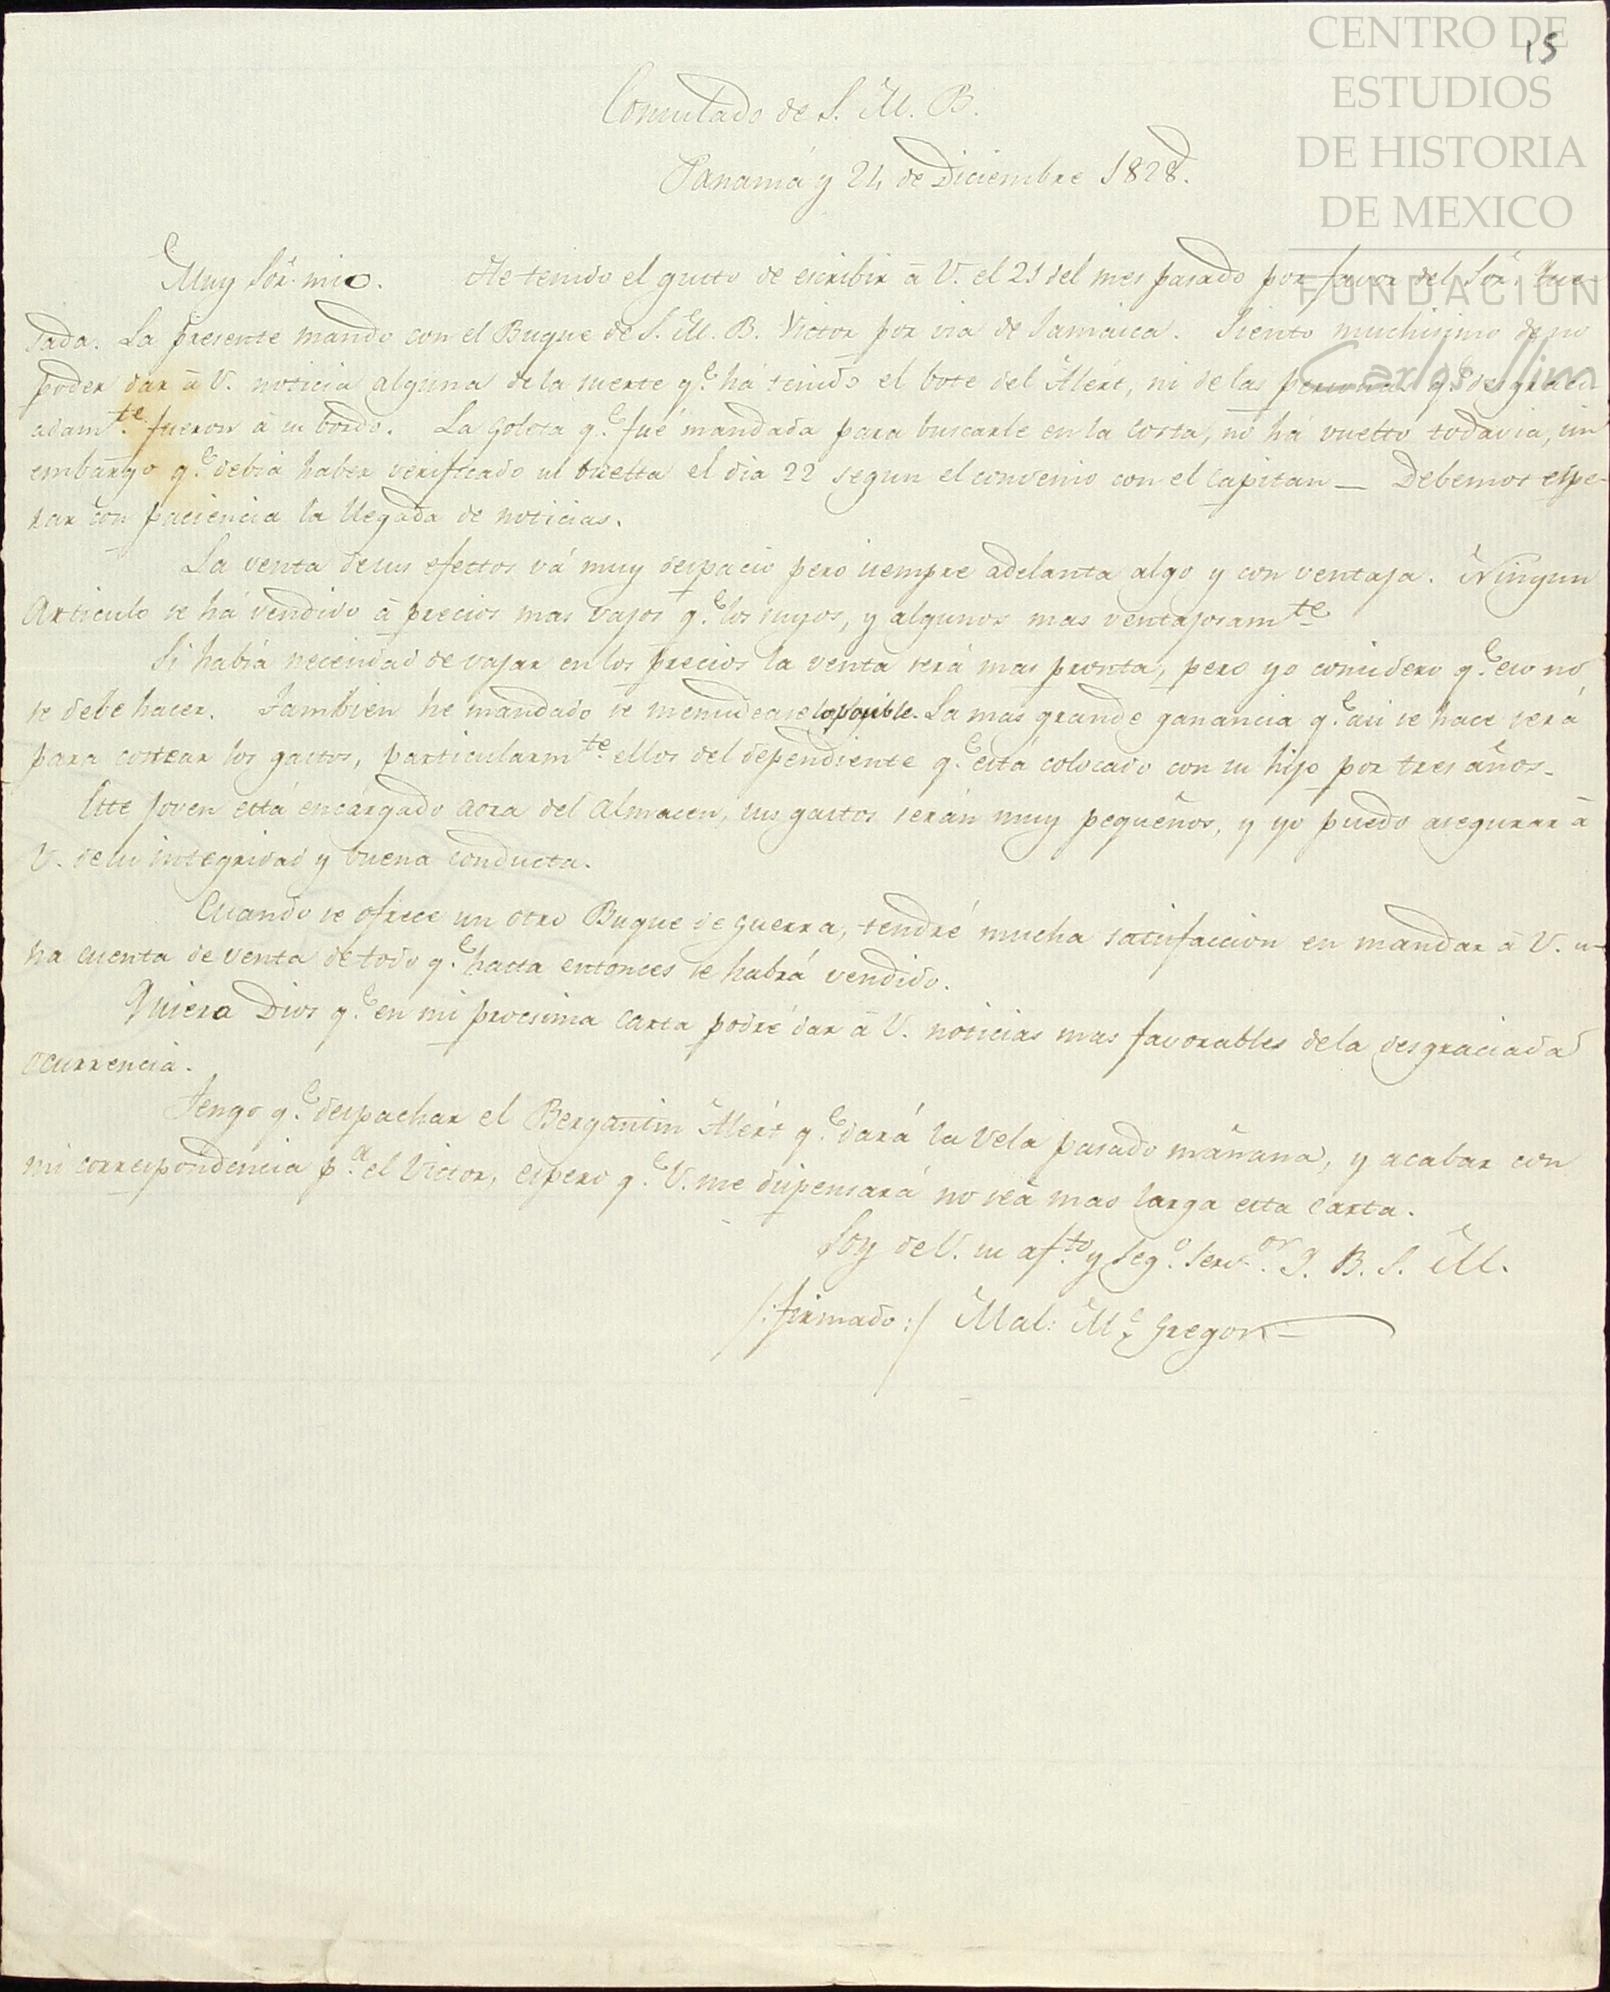 15
CENTRO DE
ESTUDIOS
DE HISTORIA
DE MEXICO
FUNDACION
Carlos Slim
Consulado de S. M. B.
Panamá y 24 de Diciembre 1828.
Muy Sōr mio. He tenido el gusto de escribir ā V. el 21 del mes pasado por favor del Sōr. Que-
sada. La presente mando con el Buque de S. M. B. Victor por via de Jamaica. Siento muchisimo de no
poder dar ā V. noticia alguna de la suerte q.e há tenido el bote del Alért, ni de las personas q.e desgraci-
adam.te fueron ā su bordo. La Goleta q.e fué mandada para buscarle en la Costa, no há vuelto todavia, sin
embargo q.e debia haber verificado su buelta el dia 22 segun el convenio con el Capitan — Debemos espe-
rar con paciencia la llegada de noticias.
La venta de sus efectos vá muy despacio pero siempre adelanta algo y con ventaja. Ningun
Articulo se há vendido ā precios mas vajos q.e los suyos, y algunos mas ventajosam.te
Si habia necesidad de vajar en los precios la venta será mas pronta, pero yo considero q.e eso no
se debe hacer. Tambien he mandado se menudease lo posible. La mas grande ganancia q.e asi se hace será
para costear los gastos, particularm.te ellos del dependiente q.e está colocado con su hijo por tres años.
Este joven está encargado aora del Almacen, sus gastos serán muy pequeños, y yo puedo asegurar ā
V. de su integridad y buena conducta.
Cuando se ofrece un otro Buque de guerra, tendré mucha satisfaccion en mandar ā V. u-
na cuenta de venta de todo q.e hasta entonces se habrá vendido.
Quiera Dios q.e en mi procsima carta podré dar ā V. noticias mas favorables de la desgraciada
ocurrencia.
Tengo q.e despachar el Bergantin Alért q.e dará la Vela pasado mañana, y acabar con
mi correspondencia p.a el Victor, espero q.e V. me dispensará no sea mas larga esta carta.
Soy de V. su af.to y seg.o serv.or Q. B. S. M.
/:firmado:/ Mal: Mc Gregor